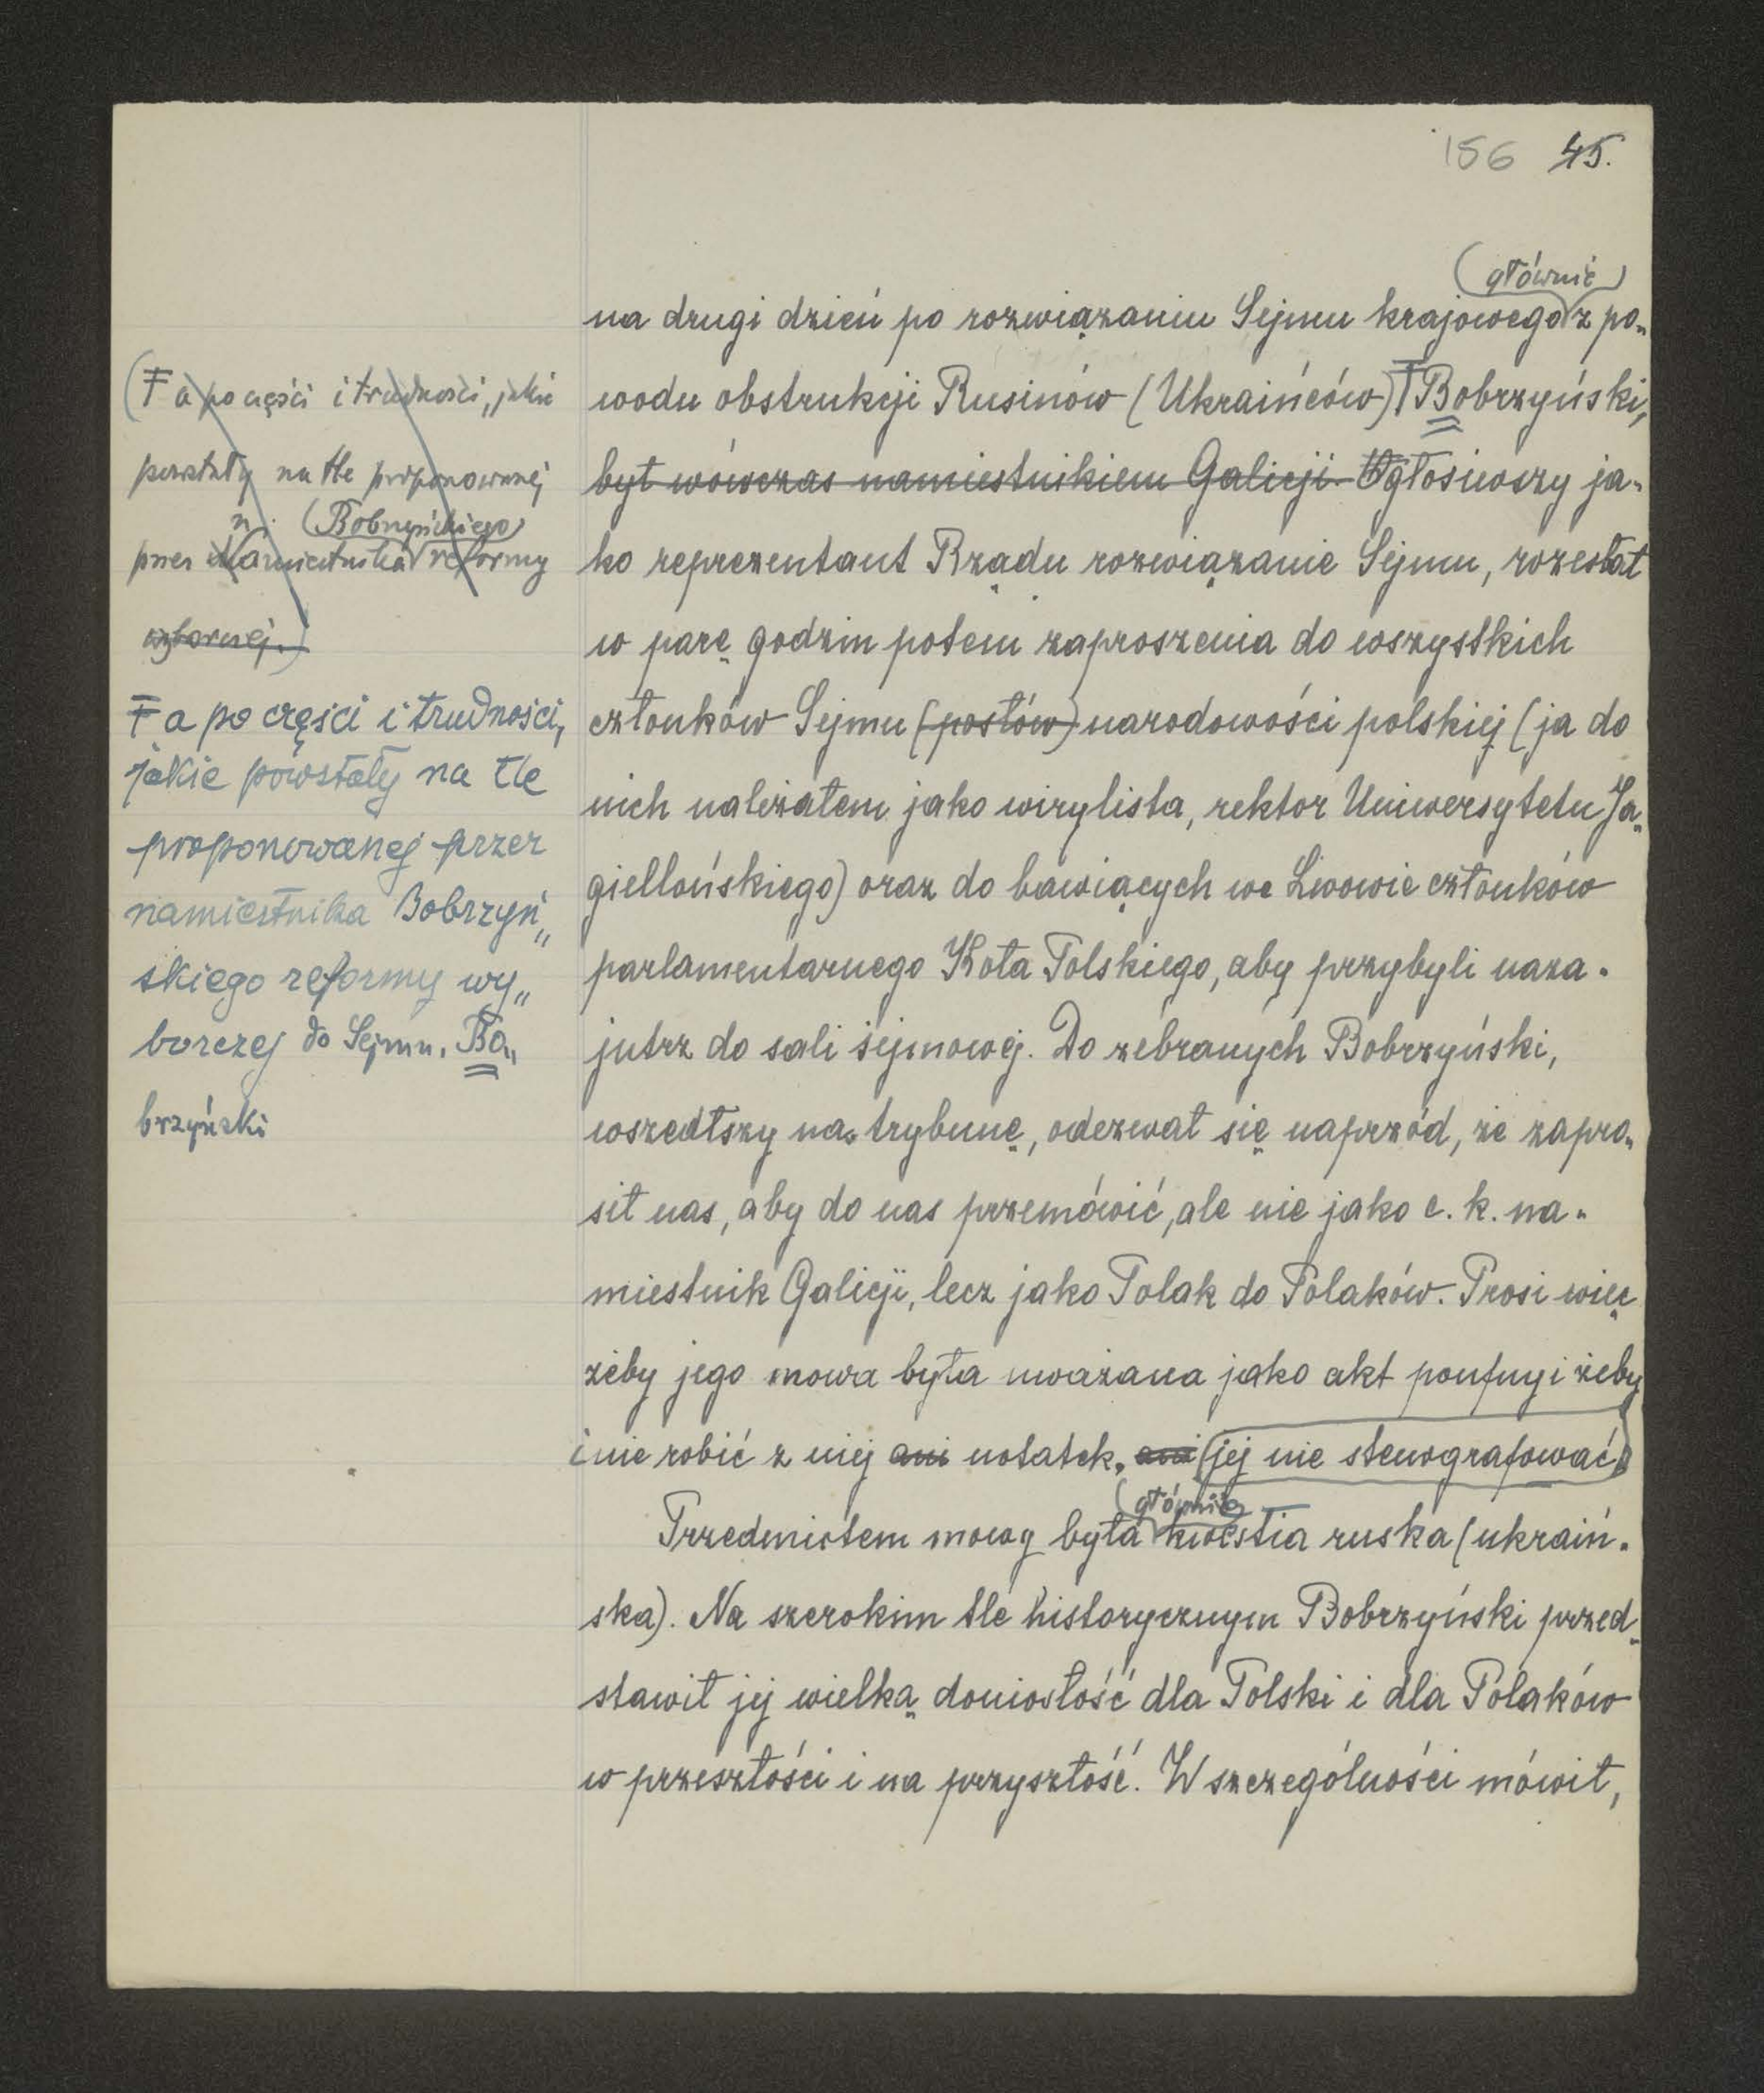 156 45.
(głównie)
na drugi dzień po rozwiązaniu Sejmu krajowego z po„
wodu obstrukcji Rusinów (Ukraińców) Ŧ Bobrzyński,
był wówczas namiestnikiem Galicji. Ogłosiwszy ja„
ko reprezentant Rządu rozwiązanie Sejmu, rozesłał
w parę godzin potem zaproszenia do wszystkich
członków Sejmu (posłów) narodowości polskiej (ja do
nich należałem jako wirylista, rektor Uniwersytetu Ja„
giellońskiego) oraz do bawiących we Lwowie członków
parlamentarnego Koła Polskiego, aby przybyli naza„
jutrz do sali sejmowej. Do zebranych Bobrzyński,
wszedłszy na trybunę, odezwał się naprzód, że zapro„
sił nas, aby do nas przemówić, ale nie jako c. k. na„
miestnik Galicji, lecz jako Polak do Polaków. Prosi więc
żeby jego mowa była uważana jako akt poufny i żeby
i nie robić z niej ani notatek, ani (jej nie stenografować)
(głównie)
Przedmiotem mowy była kwestia ruska (ukraiń„
ska). Na szerokim tle historycznym Bobrzyński przed„
stawił jej wielką doniosłość dla Polski i dla Polaków
w przeszłości i na przyszłość. W szczególności mówił,
(Ŧ a po części i trudności, jakie
powstały na tle proponowanej
n. (Bobrzyńskiego)
przez Namiestnika reformy
wyborczej.)
Ŧ a po części i trudności,
jakie powstały na tle
proponowanej przez
namiestnika Bobrzyń„
skiego reformy wy„
borczej do Sejmu. Bo„
brzyński